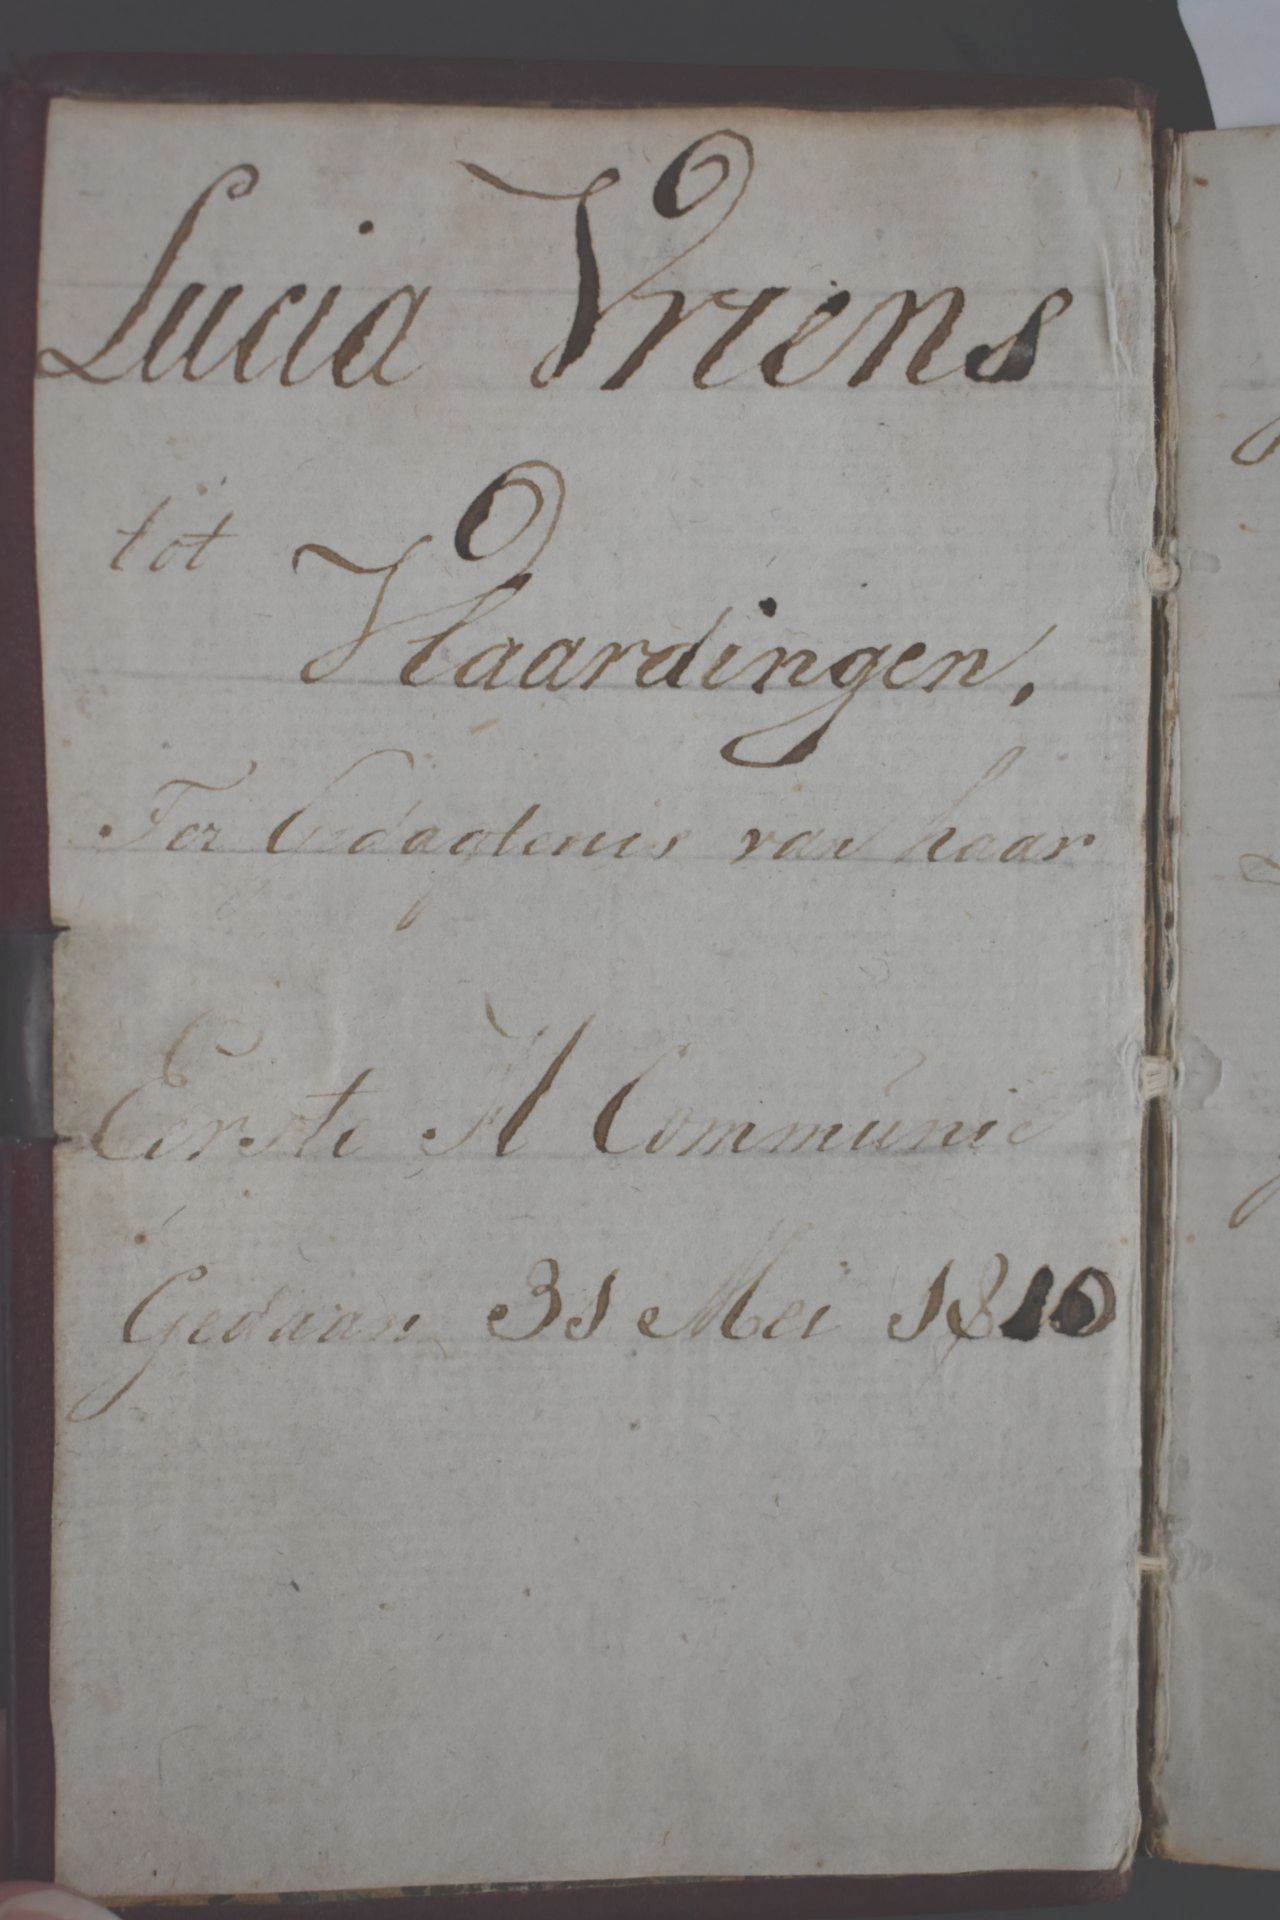 Lucia Vriens
tot
Vlaardingen.
Ter Gedagtenis van haar
Eerste H Communie
Gedaan 31 Mei 1810